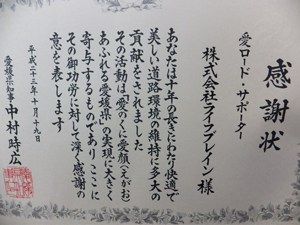 感謝状
愛ロード・サポーター
株式会社ライフブレイン様
あなたは十年の長きにわたり快適で
美しい道路環境の維持に多大の
貢献をされました
その活動は愛のくに愛顔(えがお)
あふれる愛媛県の実現に大きく
寄与するものでありここに
その御功労に対して深く感謝の
意を表します
平成二十三年十月十九日
愛媛県知事 中村時広